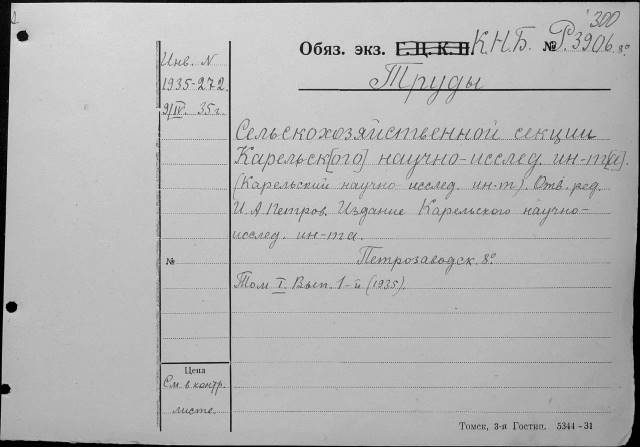 300
Обяз. экз. Г. Ц. К. П. К.Н.Б. № Р.3906. 8º
Труды
Инв. N
1935-272.
9/IV. 35 г.
Сельскохозяйственной секции
Карельск[ого] научно-исслед. ин-т[а].
(Карельский научно исслед. ин-т). Отв. ред.
И. А Петров. Издание Карельского научно-
исслед. ин-та.
№
Петрозаводск. 8º
Том I. Вып. 1-й (1935).
Цена
См. в контр.
листе.
Томск, 3-я Гостип. 5344—31